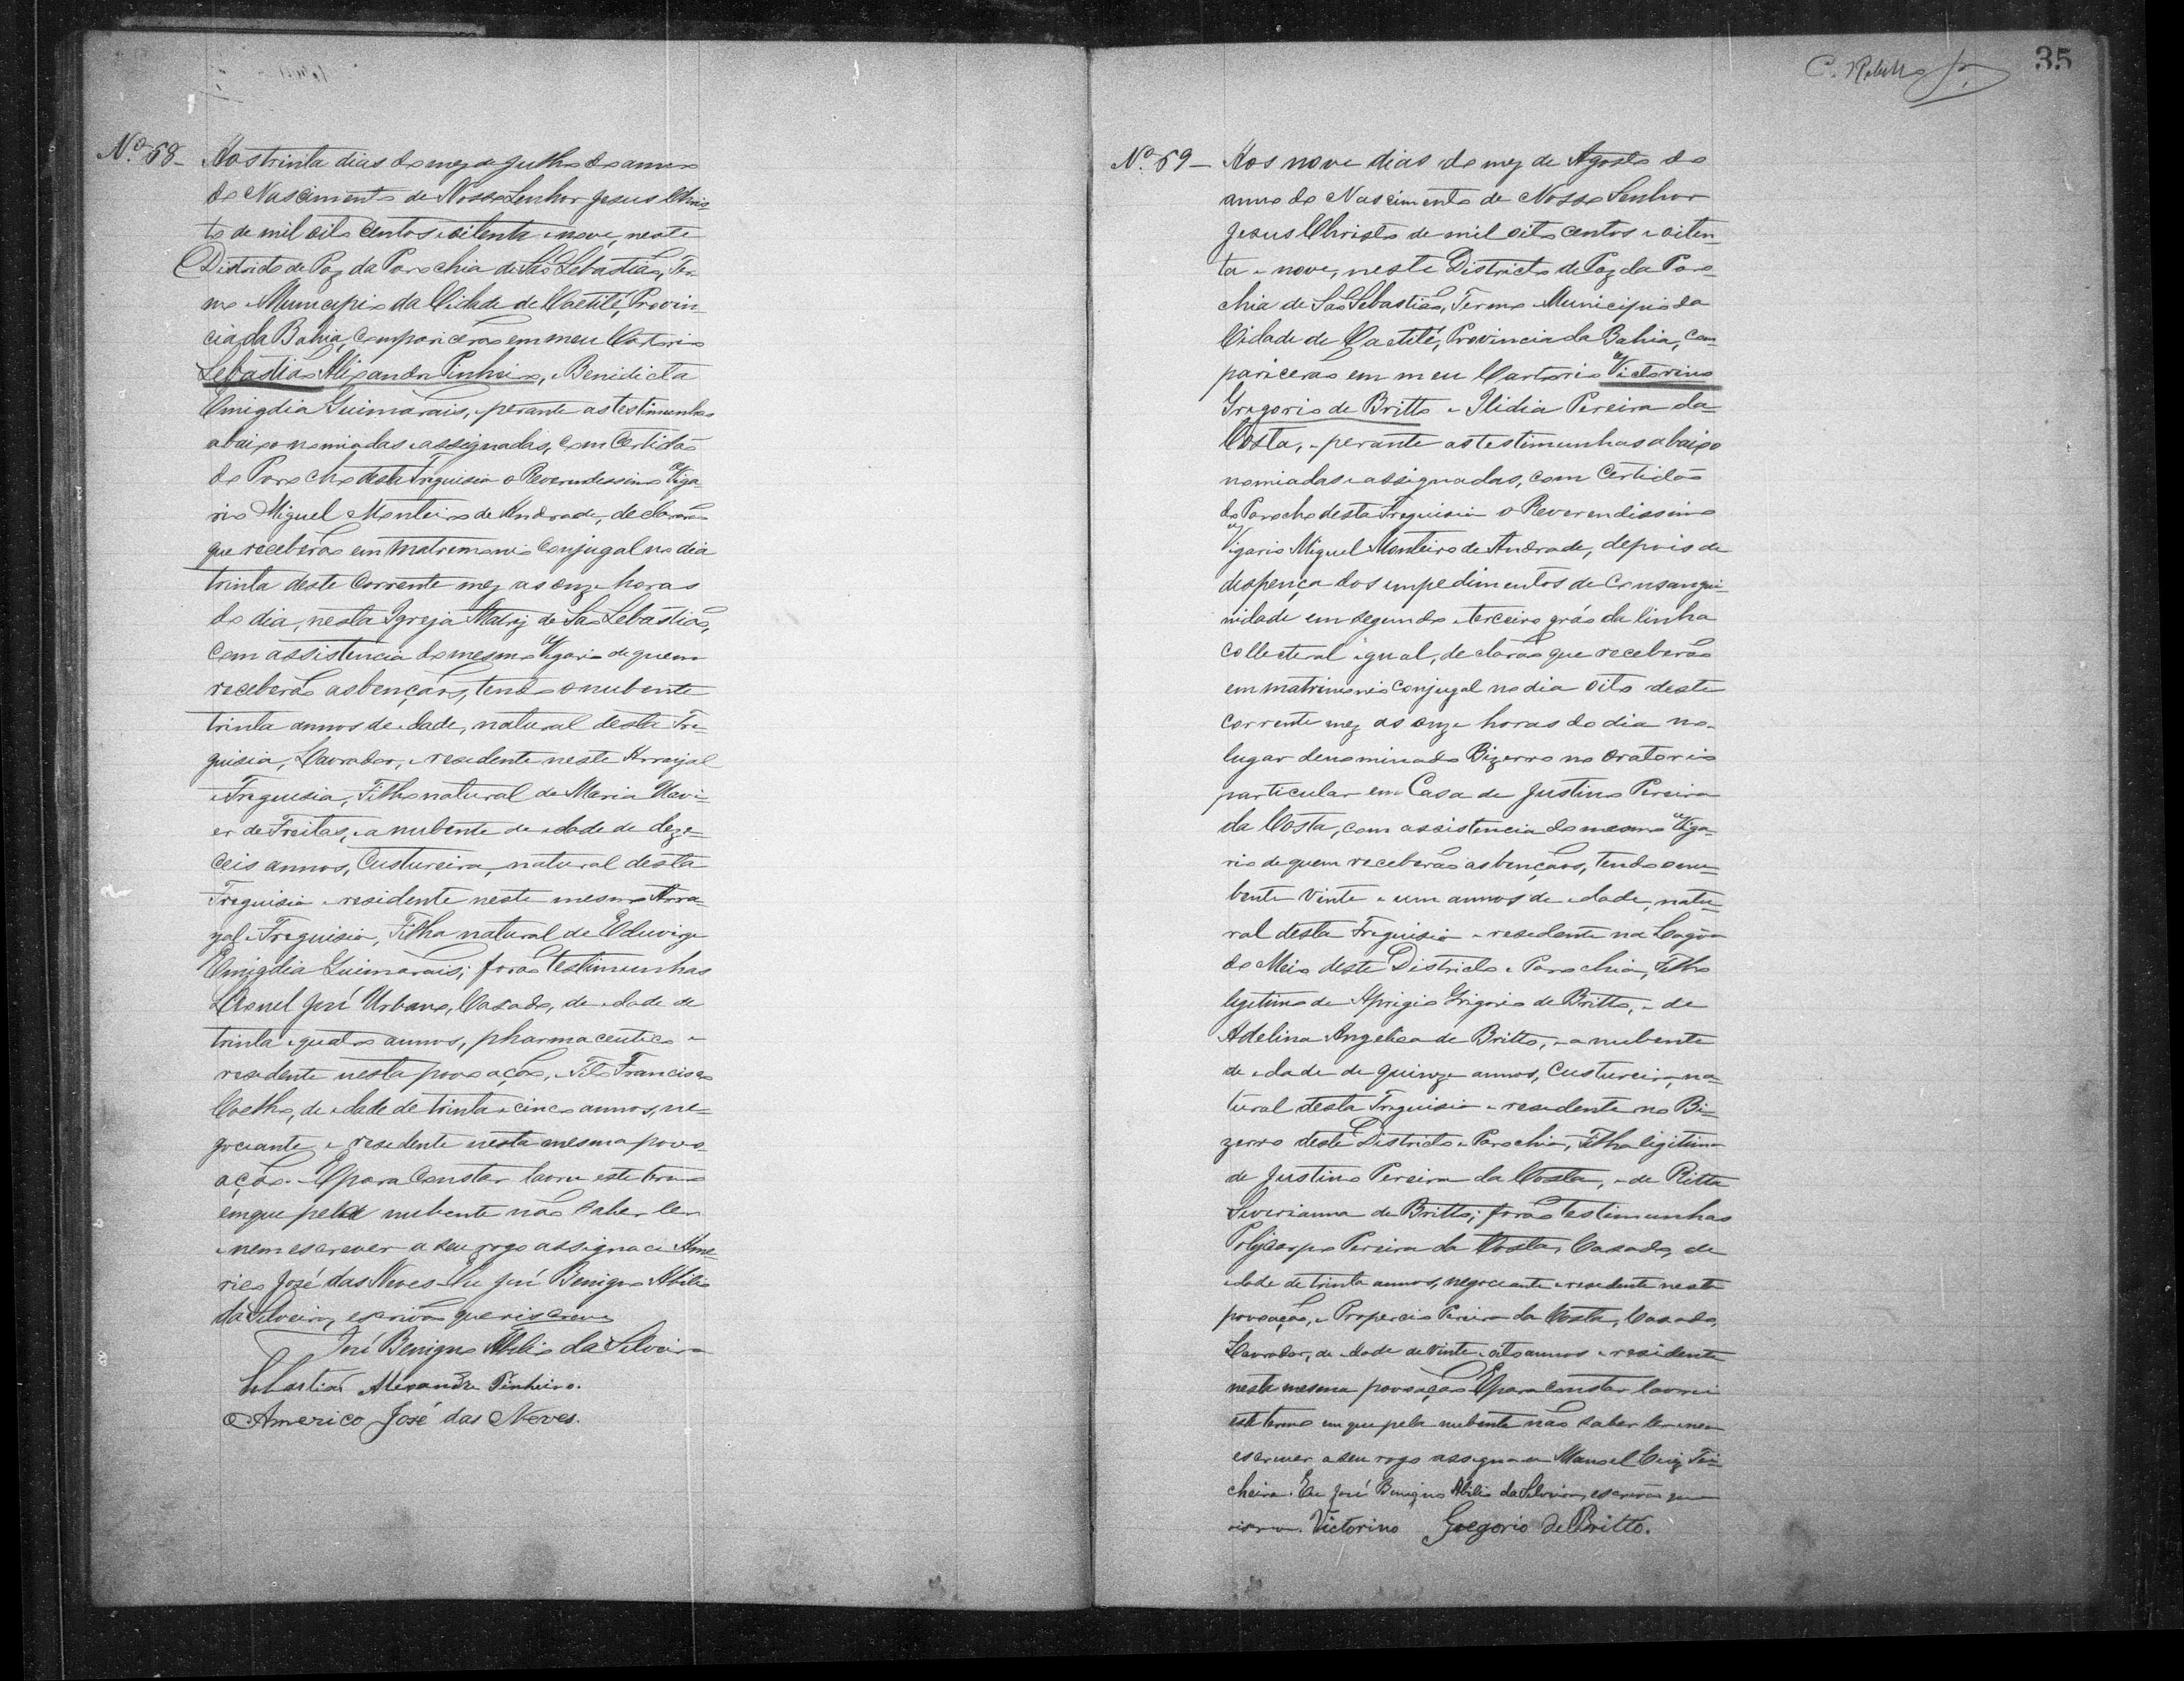 Nº 58 - Aos trinta dias do mez de Julho do anno
do Nascimento de Nosso Senhor Jesus Chris-
to de mil oito centos e oitenta e nove, neste
Districto de Paz da Parochia de São Sebastião, Ter-
mo e Municipio da Cidade de Caetité, Provin-
cia da Bahia, comparicerão em meu Cartorio
Sebastião Alixandre Pinheiro, e Benidicta
Emigdia Guimarais, e perante as testimunhas
abaixo nomiadas e assignadas, com Certidão
do Parocho desta Freguisia o Reverendissimo Viga-
rio Miguel Monteiro de Andrade, declararão
que receberão em matremonio conjugal no dia
trinta deste corrente mez as onze horas
do dia, nesta Igreja Matriz de São Sebastião,
com assistencia do mesmo Vigario de quem
receberão as bençãos, tendo o nubente
trinta annos de idade, natural desta Fre-
guisia, Lavrador, e resedente neste Arraial
e Freguesia, Filho natural de Maria Xavi-
er de Freitas, e a nubente de idade de deze-
ceis annos, Custureira, natural desta
Freguisia e residente neste mesmo Arra-
yal e Freguisia, Filha natural de Eduvirge
Emigdia Guimarais; forão testimunhas
Leonel José Urbano, Casado, de idade de
trinta e quatro annos, pharmaceutico e
resedente nesta povoação, e Tito Francisco
Coelho, de idade de trinta e cinco annos, ne-
gociante e resedente nesta mesma povo-
ação. E para constar lavrei este termo
em que pela nubente não saber ler
e nem escrever a seu rogo assigna Ame-
rico José das Neves. Eu José Benigno Abilio
da Silveira, escrivão que o iscrevi
José Benigno Abilio da Silveira
Sebastião Alexandre Pinheiro.
Americo José das Neves.
35
Nº 59 - Aos nove dias do mez de Agosto do
anno do Nascimento de Nosso Senhor
Jesus Christo de mil oito centos e oiten-
ta e nove, neste Districto de Paz da Paro-
chia de São Sebastião, Termo e Municipio da
Cidade de Caetité, Provincia da Bahia, com-
paricerão em meu Cartorio Victorino
Gregorio de Britto e Ilidia Pereira da
Costa, e perante as testimunhas abaixo
nomiadas e assignadas, com Certidão
do Parocho desta Freguisia o Reverendissimo
Vigario Miguel Monteiro de Andrade, depois de
despença dos empedimentos de consangui-
nidade em segundo e terceiro gráo da linha
collecteral igual, declarão que receberão
em matrimonio conjugal no dia oito deste
corrente mez as onze horas do dia no
lugar denominado Bizerro no oratorio
particular em Casa de Justino Pereira
da Costa, com assistencia do mesmo Viga-
rio de quem receberão as bençãos, tendo o nu-
bente vinte e um annos de idade, natu-
ral desta Freguisia e resedente na Lagôa
do Meio deste Districto e Parochia, Filho
legitimo de Aprigio Grigorio de Britto, e de
Adelina Angelica de Britto, e a nubente
de idade de quinze annos, Custureira, na-
tural desta Freguisia e resedente no Bi-
zerro deste Districto e Parochia, Filha ligitima
de Justino Pereira da Costa, e de Ritta
Siverianna de Britto; forão testimunhas
Polycarpo Pereira da Costa, Casado, de
idade de trinta annos, negociante e resedente nesta
povoação, e Propercio Pereira da Costa, Casado,
Lavrador, de idade de vinte e oito annos e residente
nesta mesma povoação. E para constar lavrei
este termo em que pela nubente não saber ler e nem
escrever a seu rogo assigna Manoel Luiz Tei-
cheira. Eu José Benigno Abilio da Silveira, escrivão que
Victorino Gregorio de Britto.